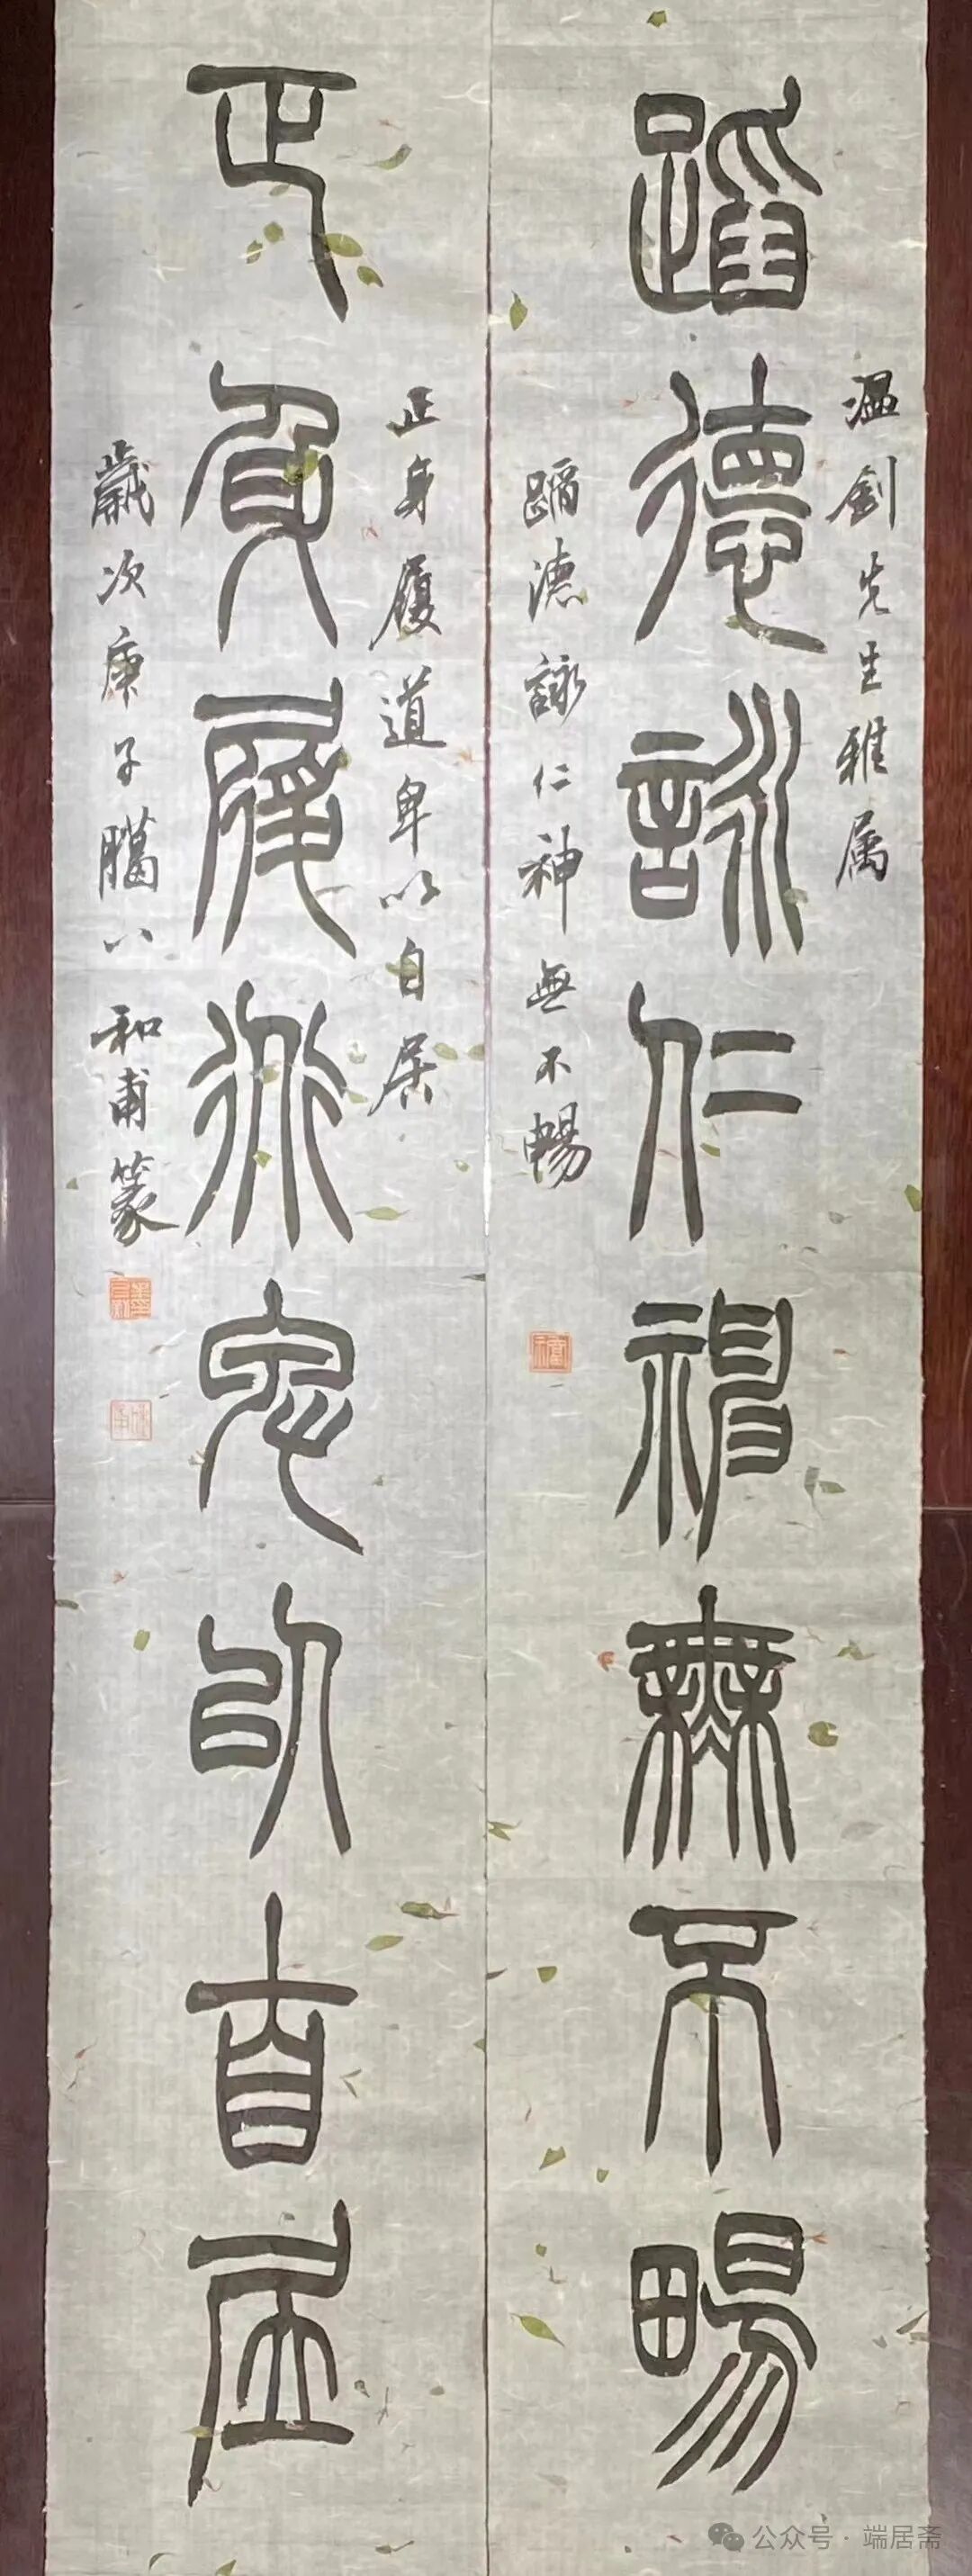 蹈德詠仁神無不暢
温釗先生雅属
蹈德詠仁神無不暢
正身履道卑以自居
正身履道卑以自居
歲次庚子臘八 和甫篆
公众号 · 端居斋